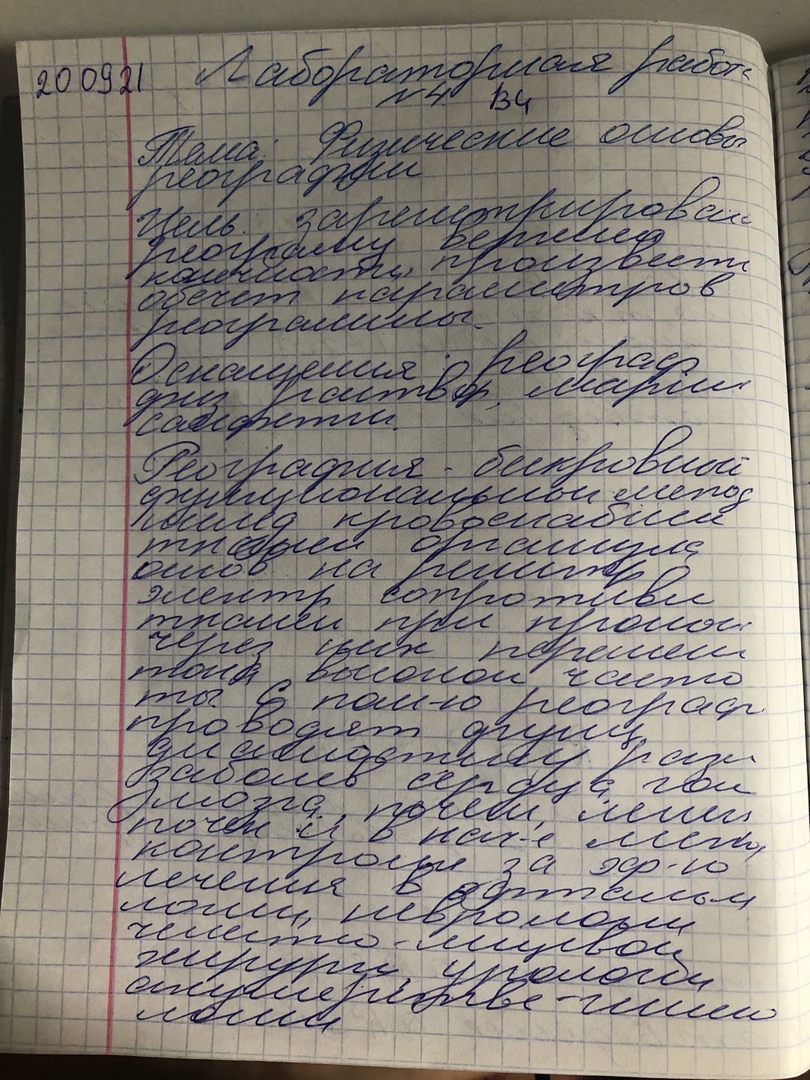 20 09 21 Лабораторная работа
№4 В4
Тема: Физические основы
реографии
Цель: зарегистрироваи
реограмму верхней
конечности, произвести
обсчет параметров
реограммы.
Оснащения: реограф
физ раствор, марли
салфетки.
Реография - бескровный
функциональный метод
исслед кровоснабжен
тканей организма
основ на регистр
электр сопротивл
тканей при прохож
через них перемен
тока высокой часто
ты С пом-ю реограф
проводят функц
диагностику разл
заболев сердца, гол
мозга, печени, легких
почек и в кач-е метода
контроля за эф-ю
лечения в офтальм
логии, неврологии
челюстно-лицевой
хирурги, урологии
акушерстве-гинеко
логии